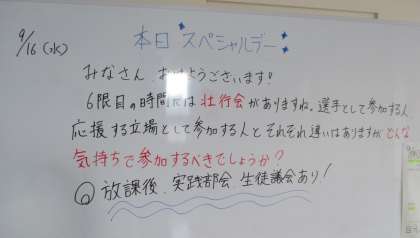 9/16 (水)
本日 スペシャルデー
みなさん おはようございます!
6限目の時間には壮行会がありますね。選手として参加する人、
応援する立場として参加する人とそれぞれ違いはありますがどんな
気持ちで参加するべきでしょうか?
◎ 放課後、実践部会、生徒議会あり!